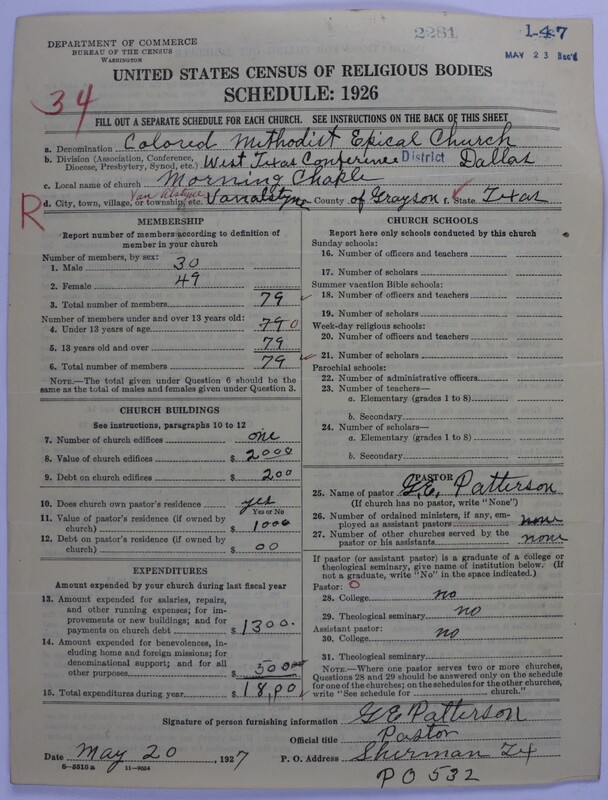 2281
1-47
MAY 23 Rec'd
DEPARTMENT OF COMMERCE
BUREAU OF THE CENSUS
WASHINGTON
UNITED STATES CENSUS OF RELIGIOUS BODIES
SCHEDULE: 1926
34
FILL OUT A SEPARATE SCHEDULE FOR EACH CHURCH. SEE INSTRUCTIONS ON THE BACK OF THIS SHEET
a. Denomination Colored Methodist Epical Church
b. Division (Association, Conference, Diocese, Presbytery, Synod, etc.) West Texas Conference District Dallas
c. Local name of church Morning Chaple
Van Alstyne
d. City, town, village, or township, etc. Vanalstyne County of Grayson f. State Texas
R
MEMBERSHIP
Report number of members according to definition of
member in your church
Number of members, by sex:
1. Male 30
2. Female 49
3. Total number of members 79
Number of members under and over 13 years old:
4. Under 13 years of age 79 0
5. 13 years old and over 79
6. Total number of members 79
NOTE.—The total given under Question 6 should be
the same as the total of males and females given under Question 3.
CHURCH BUILDINGS
See instructions, paragraphs 10 to 12
7. Number of church edifices one
8. Value of church edifices $ 2000
9. Debt on church edifices $ 200
10. Does church own pastor's residence yes
Yes or No
11. Value of pastor's residence (if owned by
church) $ 1000
12. Debt on pastor's residence (if owned by
church) $ 00
EXPENDITURES
Amount expended by your church during last fiscal year
13. Amount expended for salaries, repairs,
and other running expenses; for im-
provements or new buildings; and for
payments on church debt $ 1300.
14. Amount expended for benevolences, in-
cluding home and foreign missions; for
denominational support; and for all
other purposes 500
15. Total expenditures during year $ 18,00
CHURCH SCHOOLS
Report here only schools conducted by this church
Sunday schools:
16. Number of officers and teachers
17. Number of scholars
Summer vacation Bible schools:
18. Number of officers and teachers
19. Number of scholars
Week-day religious schools:
20. Number of officers and teachers
21. Number of scholars
Parochial schools:
22. Number of administrative officers
23. Number of teachers—
a. Elementary (grades 1 to 8)
b. Secondary
24. Number of scholars—
a. Elementary (grades 1 to 8)
b. Secondary
PASTOR
25. Name of pastor G.E. Patterson
(If church has no pastor, write "None")
26. Number of ordained ministers, if any, em-
ployed as assistant pastors none
27. Number of other churches served by the
pastor or his assistants none
If pastor (or assistant pastor) is a graduate of a college or
theological seminary, give name of institution below. (If
not a graduate, write "No" in the space indicated.)
Pastor: O
28. College no
29. Theological seminary no
Assistant pastor:
30. College no
31. Theological seminary
NOTE.—Where one pastor serves two or more churches,
Questions 28 and 29 should be answered only on the schedule
for one of the churches; on the schedules for the other churches,
write "See schedule for church."
Signature of person furnishing information G E Patterson
Official title Pastor
Date May 20, 1927 P. O. Address Sherman Tx
6—5515 a 11—9054
P O 532